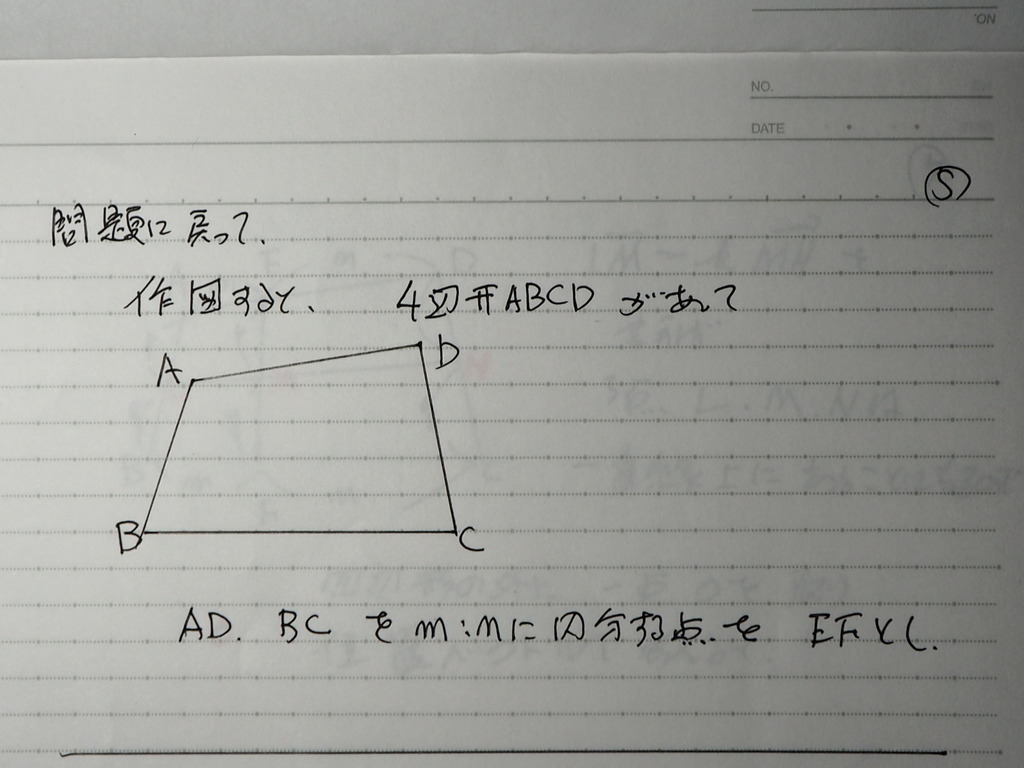 NO.
NO.
DATE
⑤
問題に戻って、
作図すると、 4辺形ABCD があって
A
D
B
C
AD. BC を m:nに内分する点を EFとし.